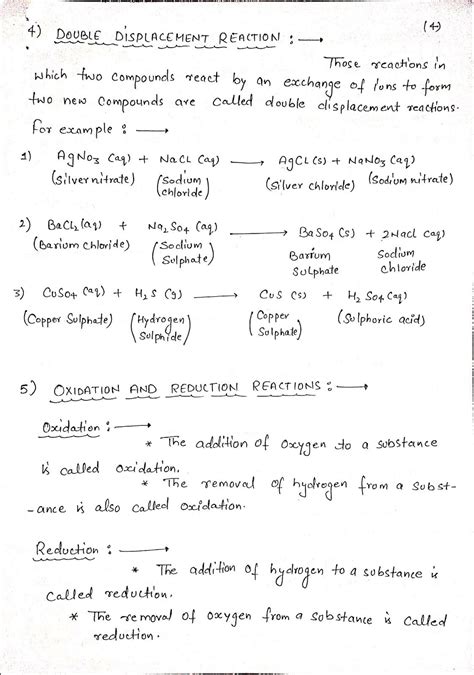 (4)
4) DOUBLE DISPLACEMENT REACTION : →
Those reactions in
which two compounds react by an exchange of ions to form
two new compounds are called double displacement reactions.
For example : →
1) AgNO3 (aq) + NaCL (aq) → AgCL (s) + NaNO3 (aq)
(Silver nitrate) (Sodium chloride) (Silver chloride) (Sodium nitrate)
2) BaCl2 (aq) + Na2SO4 (aq) → BaSO4 (s) + 2Nacl (aq)
(Barium Chloride) (Sodium Sulphate) Barium Sulphate Sodium chloride
3) CuSO4 (aq) + H2S (g) → CuS (s) + H2SO4 (aq)
(Copper Sulphate) (Hydrogen Sulphide) (Copper Sulphate) (Sulphoric acid)
5) OXIDATION AND REDUCTION REACTIONS : →
Oxidation : →
* The addition of Oxygen to a substance
is called oxidation.
* The removal of hydrogen from a subst-
-ance is also called oxidation.
Reduction : →
* The addition of hydrogen to a substance is
called reduction.
* The removal of oxygen from a substance is called
reduction.